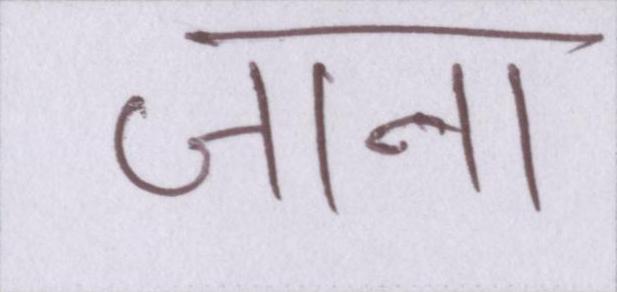 जाना